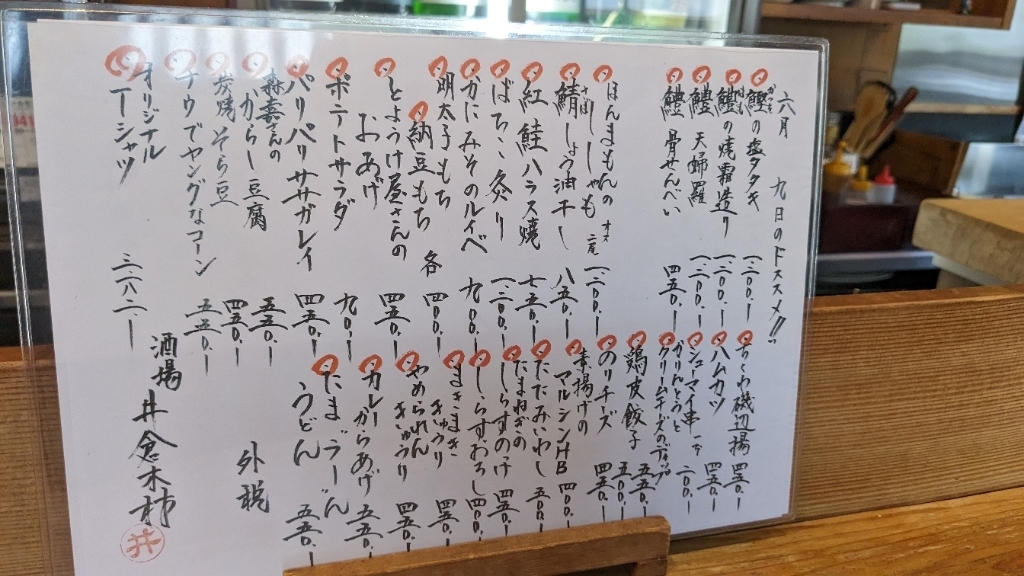 六月 九日のドススメ!!
鰹の塩タタキ 一、二〇〇.ー
鱧の焼霜造り 一、二〇〇.ー
鱧 天婦羅 一、二〇〇.ー
鱧 骨せんべい 四五〇.ー
ほんまもんの
ししゃも オス 二尾 一、二〇〇.ー
鯖しょう油干し 八五〇.ー
紅鮭ハラス焼 七五〇.ー
ばちこ炙り 一、二〇〇.ー
かにみそのルイベ 九〇〇.ー
明太子もち
納豆もち 各 四〇〇.ー
とようけ屋さんの
おあげ 四五〇.ー
ポテトサラダ 九〇.ー
パリパリササガレイ 四五〇.ー
森嘉さんの
からし豆腐 五五〇.ー
炭焼そら豆 四五〇.ー
チウでヤングなコーン 五五〇.ー
オリジナル
Tシャツ 三、二八二.ー
ちくわ磯辺揚 四五〇.ー
ハムカツ 四五〇.ー
シューマイ串 一本 二〇〇.ー
かりんとうと
クリームチーズの
鶏皮餃子 五五〇.ー
のりチーズ 四五〇.ー
素揚げの
マルシンHB 四〇〇.ー
たたみいわし 五〇〇.ー
たまねぎの
しらすのっけ 四五〇.ー
しらすおろし 四〇〇.ー
まきまき
きゅうり 四五〇.ー
やめられん
きゅうり 四五〇.ー
カレーからあげ 五五〇.ー
たまごうーどん
うどん 五五〇.ー
外税
酒場 井倉木材
井